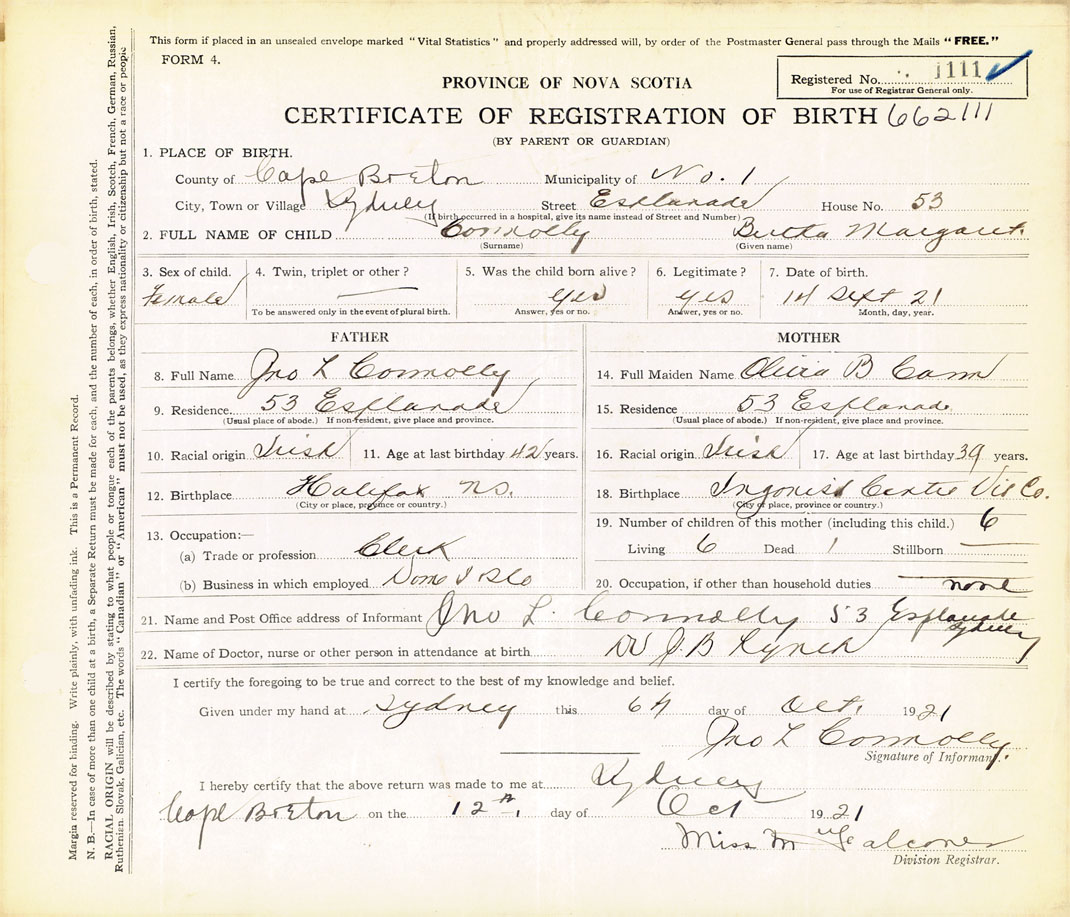 This form if placed in an unsealed envelope marked "Vital Statistics" and properly addressed will, by order of the Postmaster General pass through the Mails "FREE."
FORM 4.
Registered No. 1111
For use of Registrar General only.
PROVINCE OF NOVA SCOTIA
CERTIFICATE OF REGISTRATION OF BIRTH 662111
(BY PARENT OR GUARDIAN)
1. PLACE OF BIRTH.
County of Cape Breton Municipality of No. 1
City, Town or Village Sydney Street Esplanade House No. 53
(If birth occurred in a hospital, give its name instead of Street and Number)
2. FULL NAME OF CHILD Connolly Bertha Margaret.
(Surname) (Given name)
3. Sex of child. 4. Twin, triplet or other? 5. Was the child born alive? 6. Legitimate? 7. Date of birth.
Female — yes yes 14 Sept 21
To be answered only in the event of plural birth. Answer, yes or no. Answer, yes or no. Month, day, year.
FATHER MOTHER
8. Full Name Jno L Connolly 14. Full Maiden Name Olivia B Cann
9. Residence 53 Esplanade 15. Residence 53 Esplanade
(Usual place of abode.) If non-resident, give place and province. (Usual place of abode.) If non-resident, give place and province.
10. Racial origin Irish 11. Age at last birthday 42 years. 16. Racial origin Irish 17. Age at last birthday 39 years.
12. Birthplace Halifax N.S. 18. Birthplace Ingonish Centre Vic Co.
(City or place, province or country.) (City or place, province or country.)
13. Occupation:— 19. Number of children of this mother (including this child.) 6
(a) Trade or profession Clerk Living 6 Dead 1 Stillborn —
(b) Business in which employed Dom I 20. Occupation, if other than household duties none
21. Name and Post Office address of Informant Jno L. Connolly 53 Esplanade Sydney
22. Name of Doctor, nurse or other person in attendance at birth Dr J. B Lynch
I certify the foregoing to be true and correct to the best of my knowledge and belief.
Given under my hand at Sydney this 6th day of Oct. 1921
Jno L Connolly
Signature of Informant.
I hereby certify that the above return was made to me at Sydney
Cape Breton on the 12th day of Oct 1921
Miss M Falconer
Division Registrar.
Margia reserved for binding. Write plainly, with unfading ink. This is a Permanent Record.
N. B.—In case of more than one child at a birth, a Separate Return must be made for each, and the number of each, in order of birth, stated.
RACIAL ORIGIN will be described by stating to what people or tongue each of the parents belongs, whether English, Irish, Scotch, French, German, Russian,
Ruthenian, Slovak, Galician, etc. The words "Canadian" or "American" must not be used, as they express nationality or citizenship but not a race or people